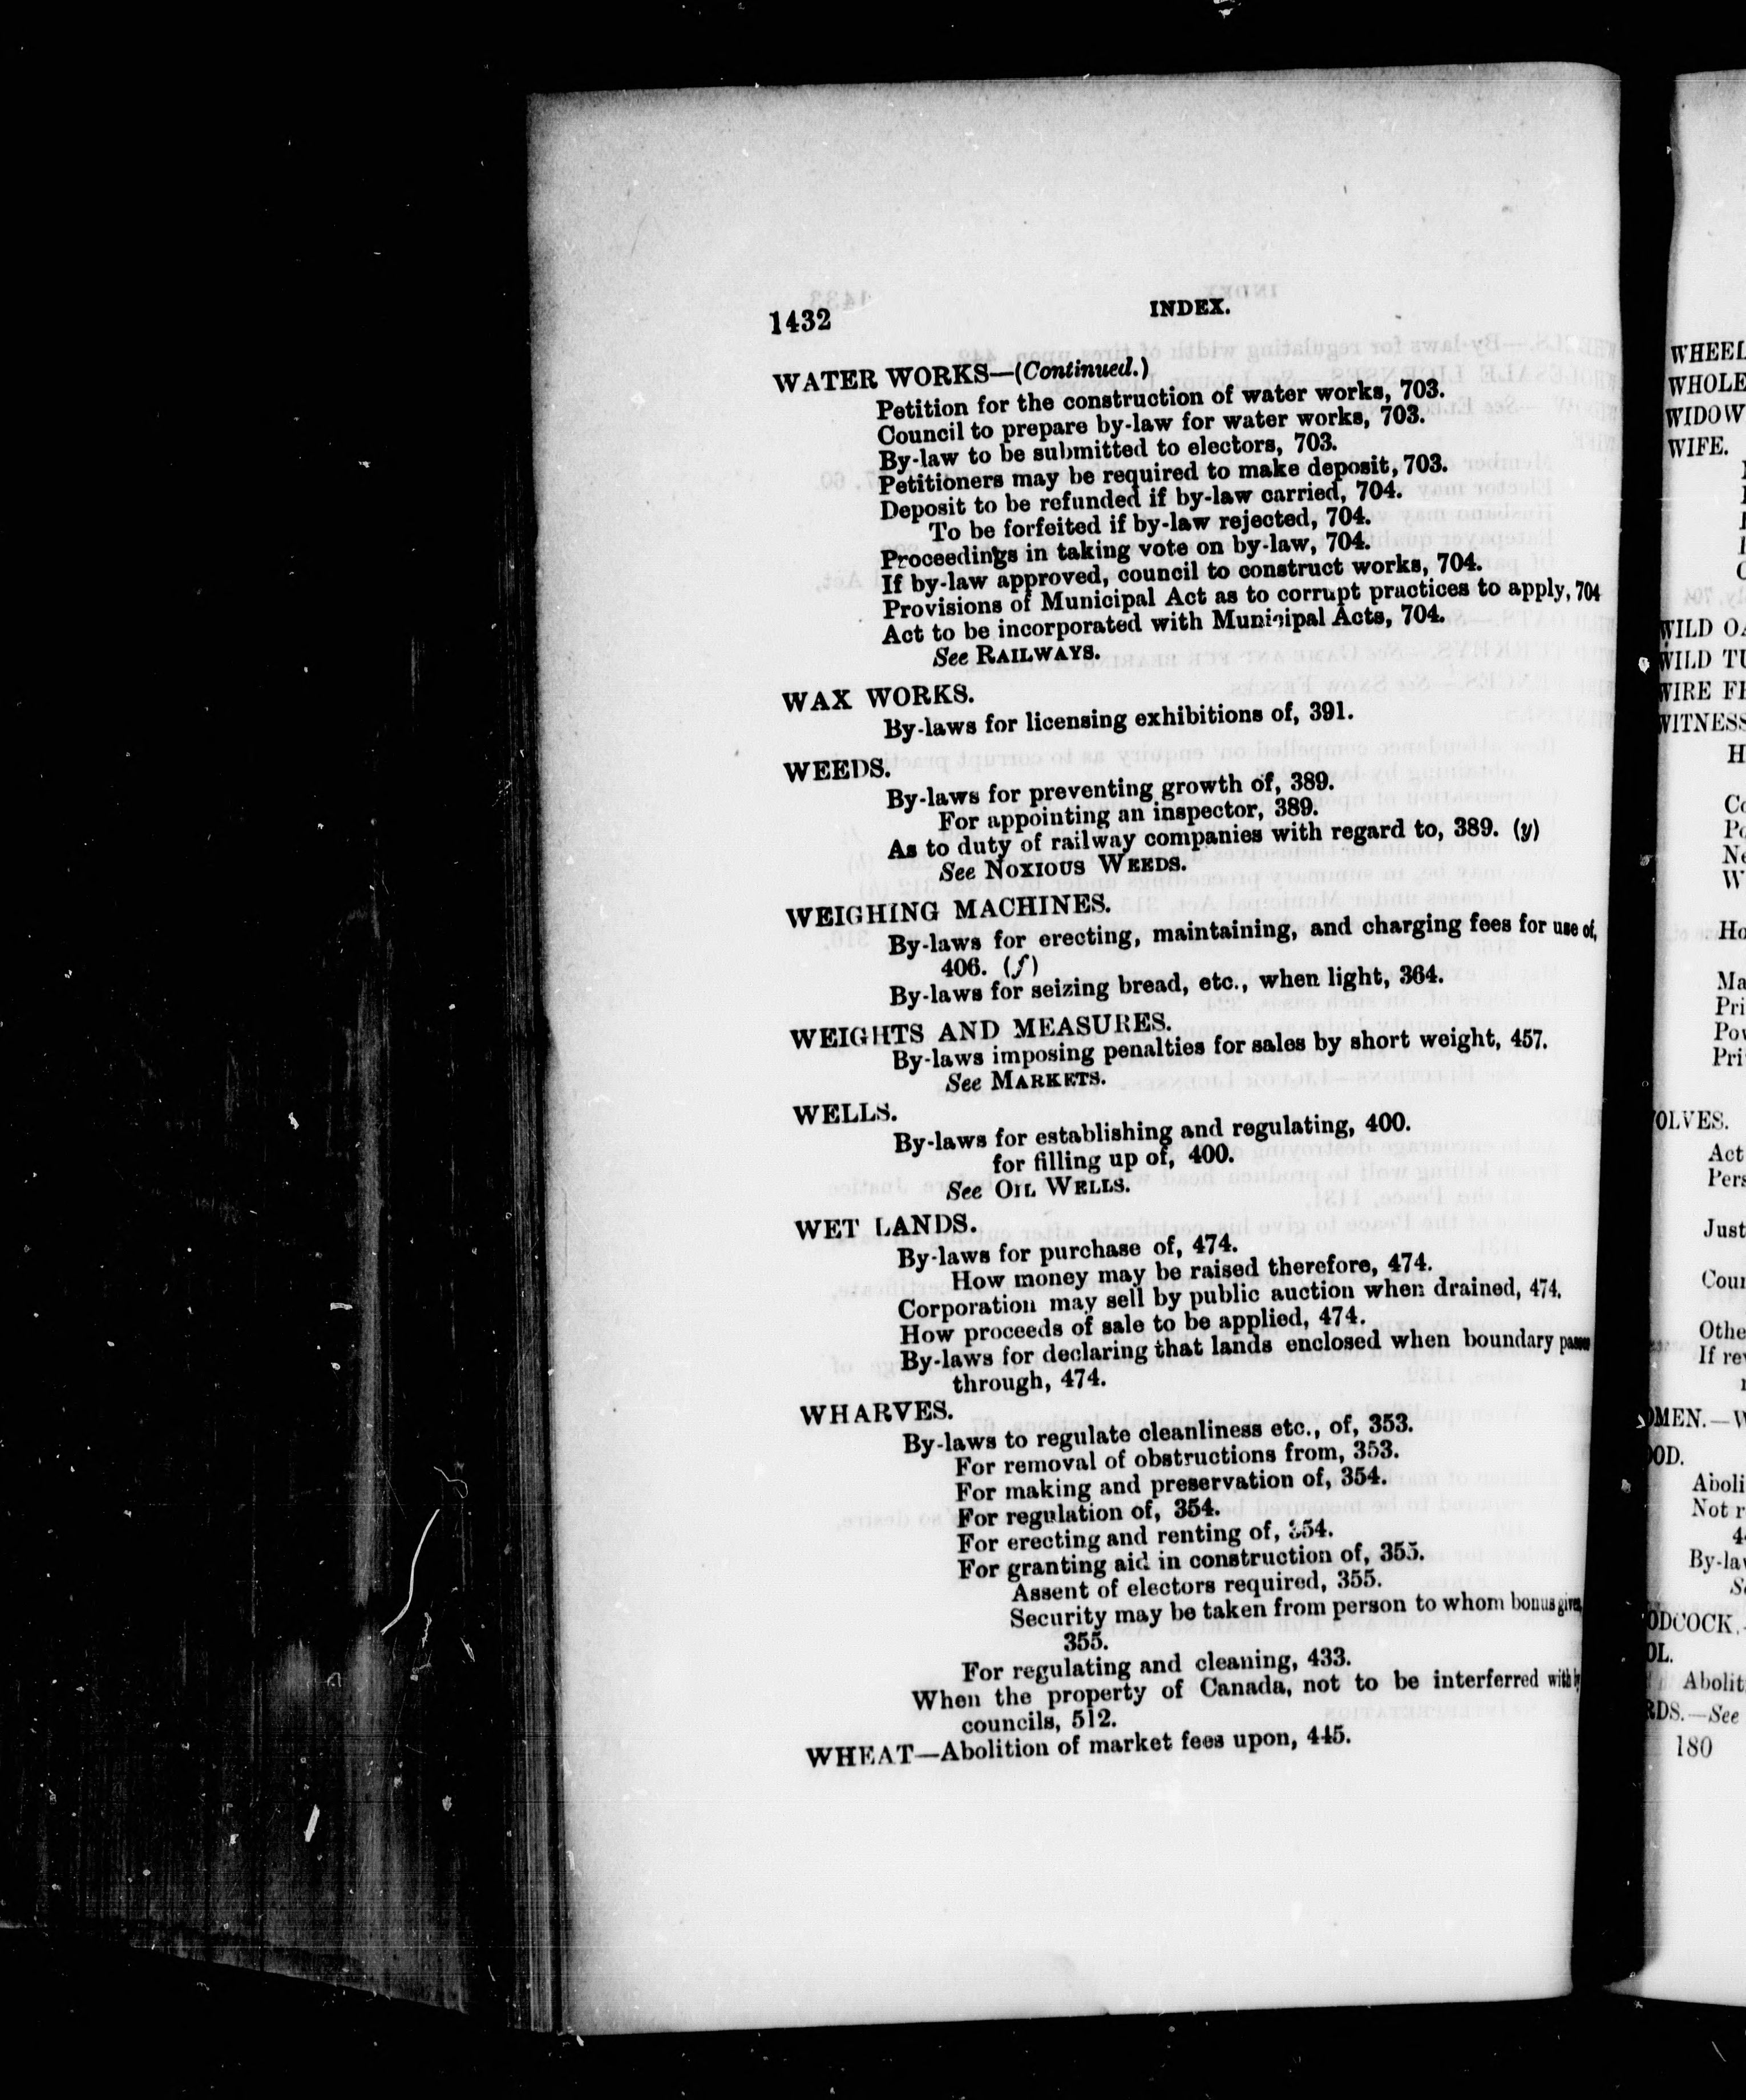 1432
INDEX.
WATER WORKS—(Continued.)
Petition for the construction of water works, 703.
Council to prepare by-law for water works, 703.
By-law to be submitted to electors, 703.
Petitioners may be required to make deposit, 703.
Deposit to be refunded if by-law carried, 704.
To be forfeited if by-law rejected, 704.
Proceedings in taking vote on by-law, 704.
If by-law approved, council to construct works, 704.
Provisions of Municipal Act as to corrupt practices to apply, 704
Act to be incorporated with Municipal Acts, 704.
See RAILWAYS.
WAX WORKS.
By-laws for licensing exhibitions of, 391.
WEEDS.
By-laws for preventing growth of, 389.
For appointing an inspector, 389.
As to duty of railway companies with regard to, 389. (y)
See NOXIOUS WEEDS.
WEIGHING MACHINES.
By-laws for erecting, maintaining, and charging fees for use of,
406. (f)
By-laws for seizing bread, etc., when light, 364.
WEIGHTS AND MEASURES.
By-laws imposing penalties for sales by short weight, 457.
See MARKETS.
WELLS.
By-laws for establishing and regulating, 400.
for filling up of, 400.
See OIL WELLS.
WET LANDS.
By-laws for purchase of, 474.
How money may be raised therefore, 474.
Corporation may sell by public auction when drained, 474.
How proceeds of sale to be applied, 474.
By-laws for declaring that lands enclosed when boundary
through, 474.
WHARVES.
By-laws to regulate cleanliness etc., of, 353.
For removal of obstructions from, 353.
For making and preservation of, 354.
For regulation of, 354.
For erecting and renting of, 354.
For granting aid in construction of, 355.
Assent of electors required, 355.
Security may be taken from person to whom bonus
355.
For regulating and cleaning, 433.
When the property of Canada, not to be interferred with
councils, 512.
WHEAT—Abolition of market fees upon, 445.
WHEEL
WHOLE
WIDOW
WIFE.
WILD
WILD
WIRE
WITNESS
H
Ho
Ma
Pri
Pri
OLVES.
Act
Pers
Just
Coun
Othe
If
OMEN.
OOD.
Aboli
Not r
By-la
ODCOCK.
OL.
Abolit
RDS.—See
180